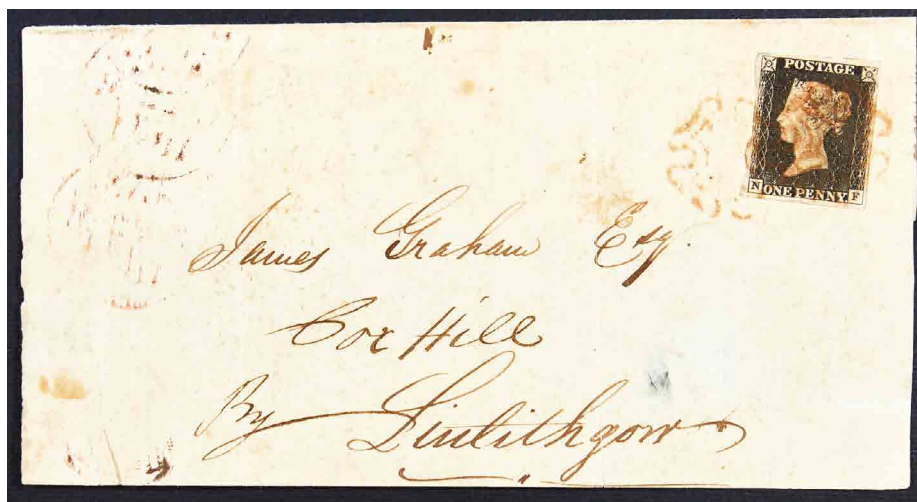 POSTAGE
N ONE PENNY F
James Graham Esq.
Cox Hill
By Linlithgow